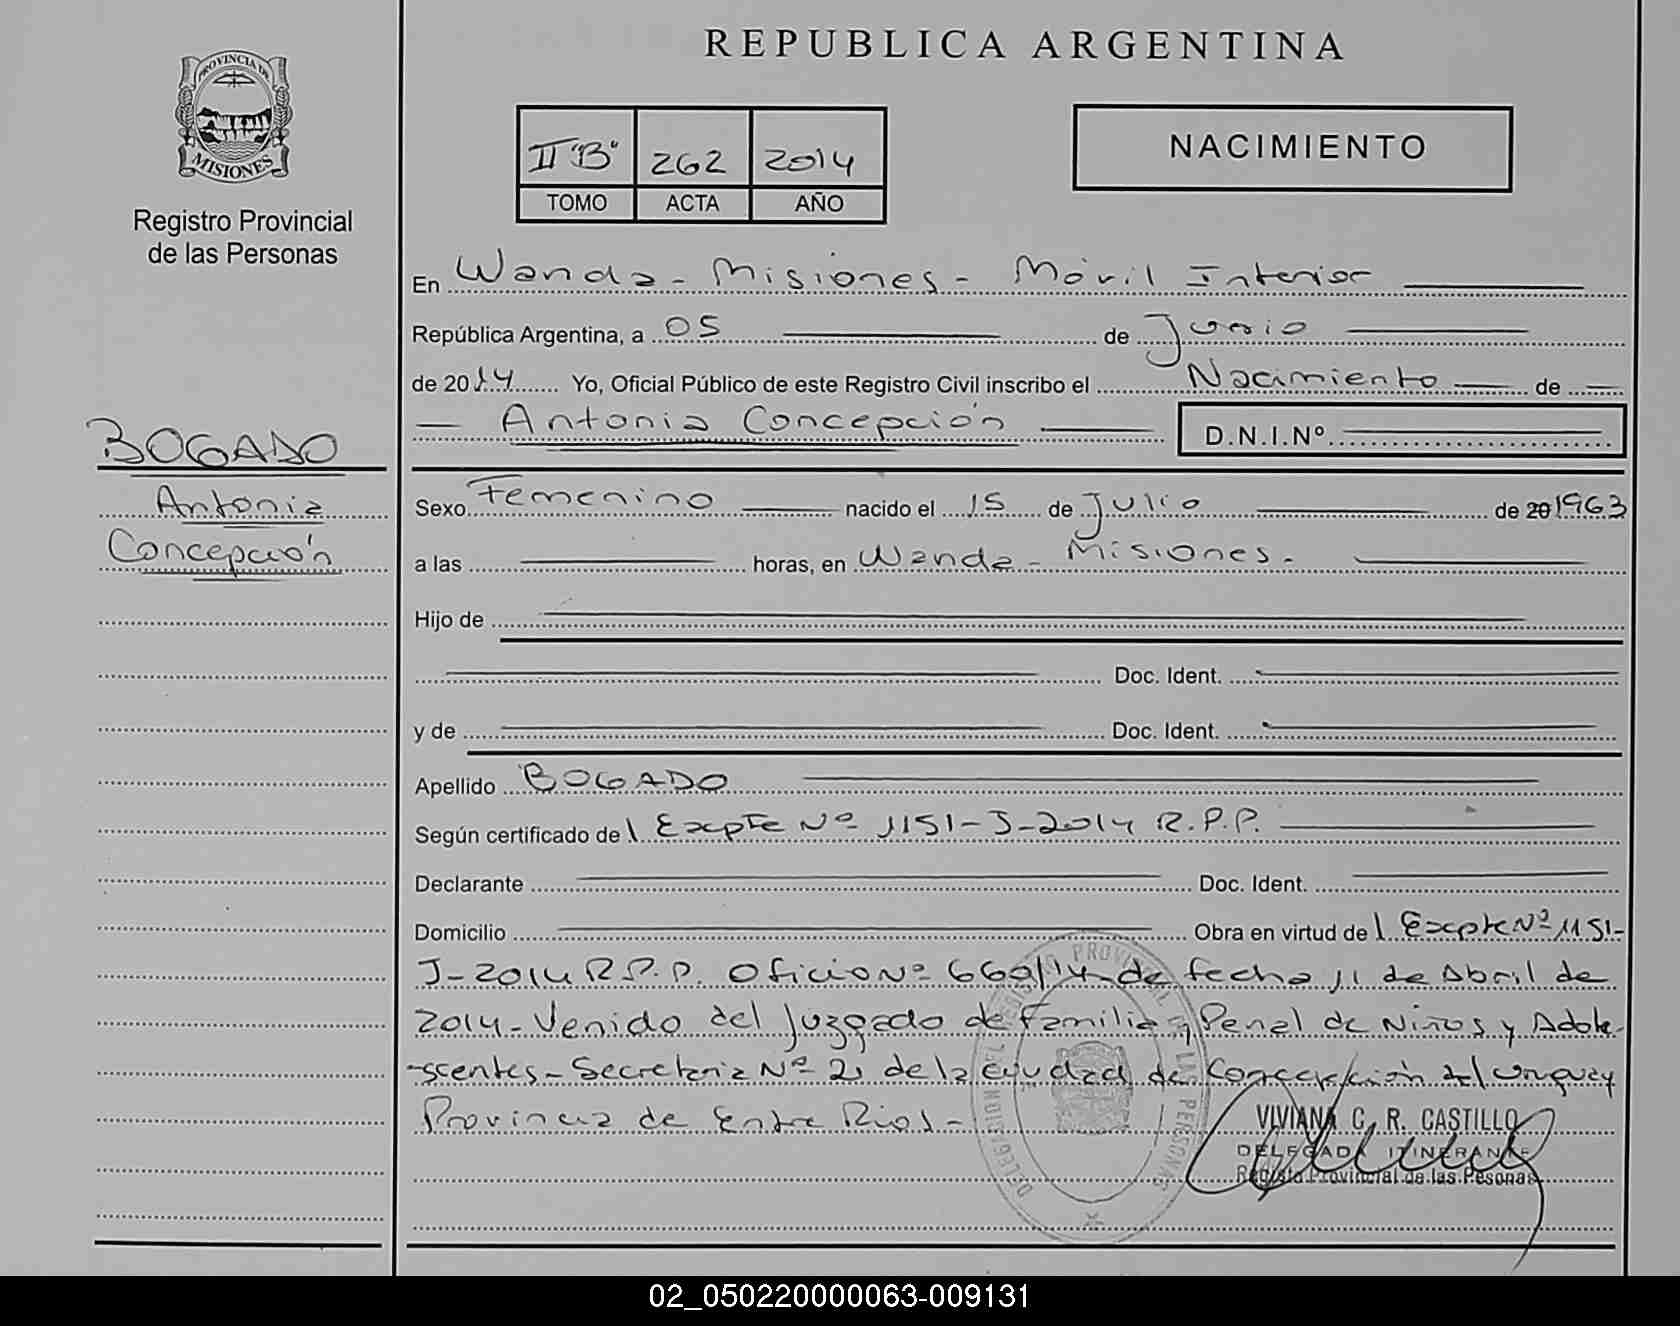 REPUBLICA ARGENTINA
PROVINCIA DE
MISIONES
Registro Provincial
de las Personas
II "B" 262 2014
TOMO ACTA AÑO
NACIMIENTO
En Wanda - Misiones - Móvil Interior
República Argentina, a 05 de Junio
de 2014 Yo, Oficial Público de este Registro Civil inscribo el Nacimiento de
Antonia Concepción D.N.I.Nº
BOGADO
Antonia
Concepción
Sexo Femenino nacido el 15 de Julio de 20 1963
a las horas, en Wanda - Misiones.
Hijo de
Doc. Ident.
y de Doc. Ident.
Apellido BOGADO
Según certificado de Expte Nº 1151-J-2014 R.P.P.
Declarante Doc. Ident.
Domicilio Obra en virtud de Expte Nº 1151-
J-2014 R.P.P. Oficio Nº /14 de fecha 11 de Abril de
2014- Venido del Juzgado de Familia y Penal de Niños y Adole-
-scentes - Secretaria Nº 2, de la ciudad de Concepción del Uruguay
Provincia de Entre Rios -
VIVIANA C. R. CASTILLO
DELEGADA ITINERANTE
Registro Provincial de las Pesonas
DELEGACION DEL REGISTRO PROVINCIAL DE LAS PERSONAS
02_050220000063-009131